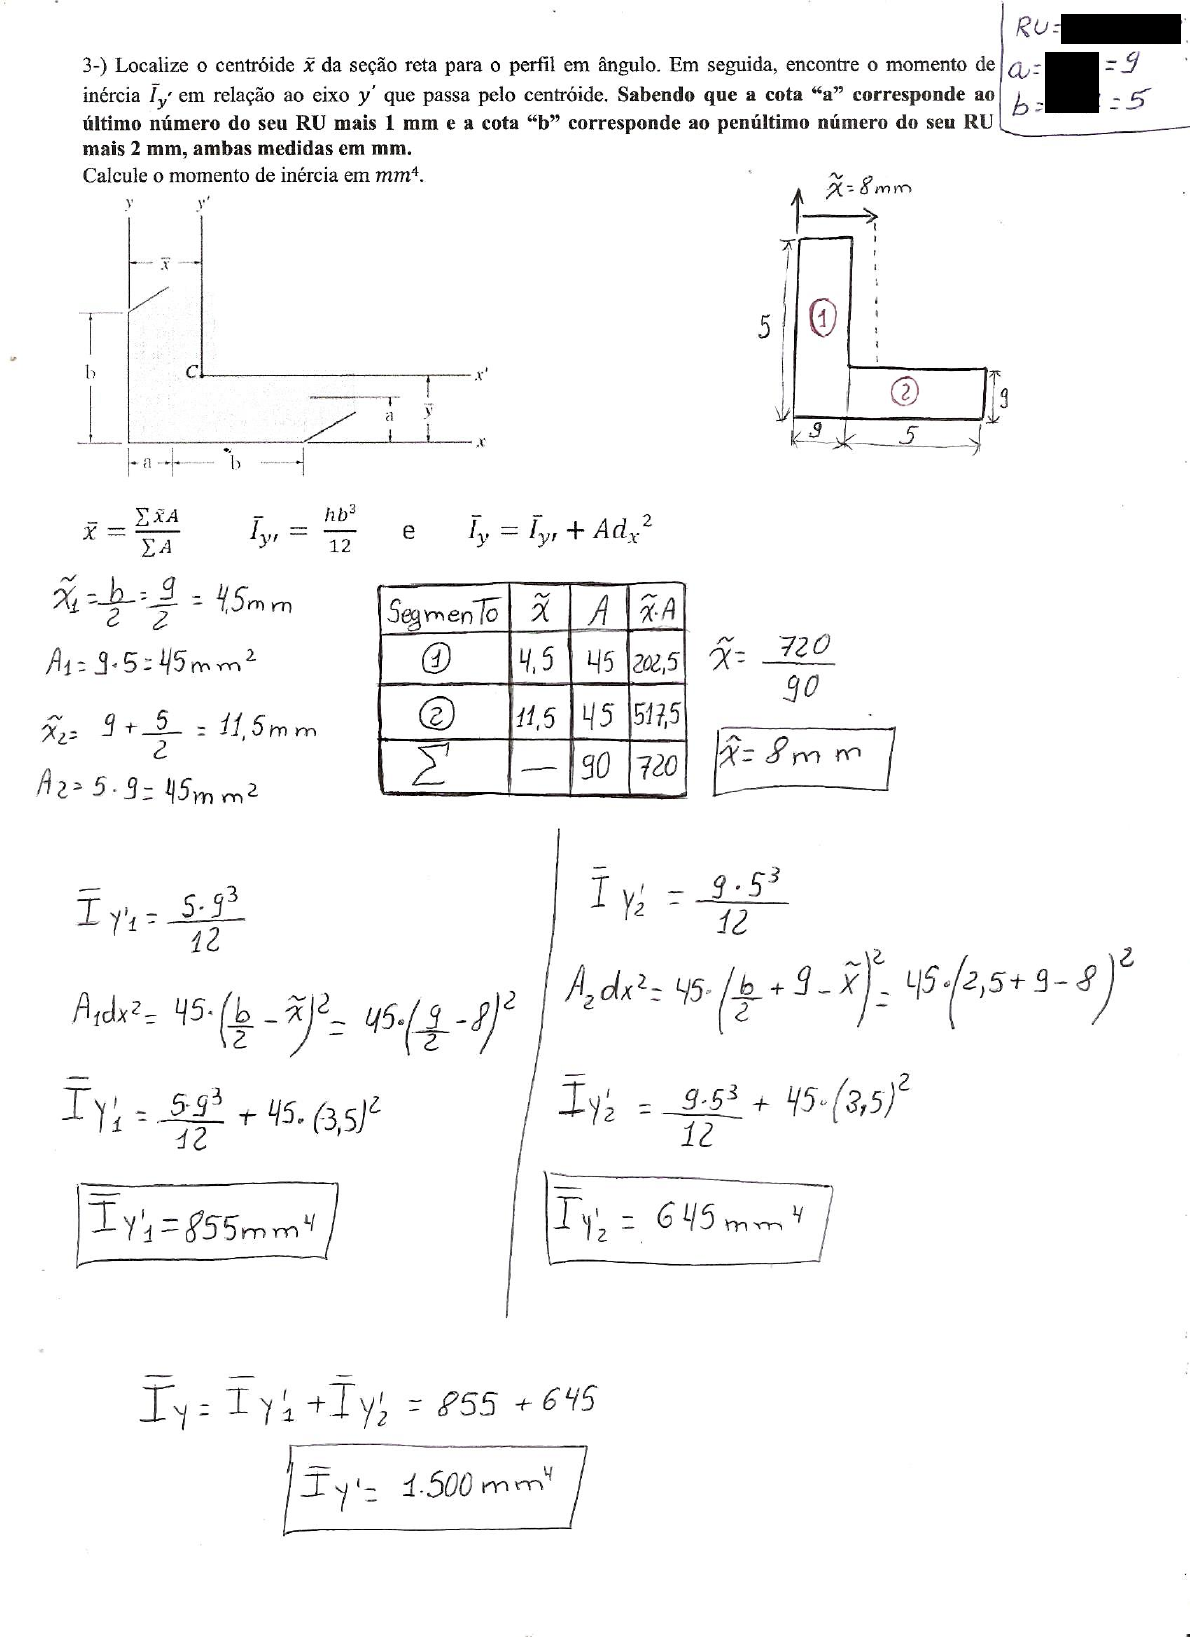 RU=
a= =9
b= =5
3-) Localize o centróide x̄ da seção reta para o perfil em ângulo. Em seguida, encontre o momento de
inércia Ī_y′ em relação ao eixo y′ que passa pelo centróide. Sabendo que a cota “a” corresponde ao
último número do seu RU mais 1 mm e a cota “b” corresponde ao penúltimo número do seu RU
mais 2 mm, ambas medidas em mm.
Calcule o momento de inércia em mm⁴.
y y′
x̄
b
C
x′
a
ȳ
x
a
b
x̃=8mm
5
1
2
9
9
5
x̄ = ∑x̃A / ∑A Ī_y′ = hb³/12 e Ī_y = Ī_y′ + Ad_x²
x̃₁ = b/2 = 9/2 = 4,5mm
A₁= 9·5=45mm²
x̃₂= 9 + 5/2 = 11,5mm
A₂= 5·9=45mm²
Segmento x̃ A x̃·A
1 4,5 45 202,5
2 11,5 45 517,5
∑ — 90 720
x̃= 720/90
x̃= 8mm
Ī y′₁ = 5·9³/12
A₁dx²= 45·(b/2 - x̃)² = 45·(9/2 - 8)²
Ī y′₁ = 5·9³/12 + 45·(3,5)²
Ī y′₁ = 855mm⁴
Ī y′₂ = 9·5³/12
A₂dx²= 45·(b/2 + 9 - x̃)² = 45·(2,5+9-8)²
Ī y′₂ = 9·5³/12 + 45·(3,5)²
Ī y′₂ = 645mm⁴
Ī y = Ī y′₁ + Ī y′₂ = 855 + 645
Ī y′= 1.500mm⁴